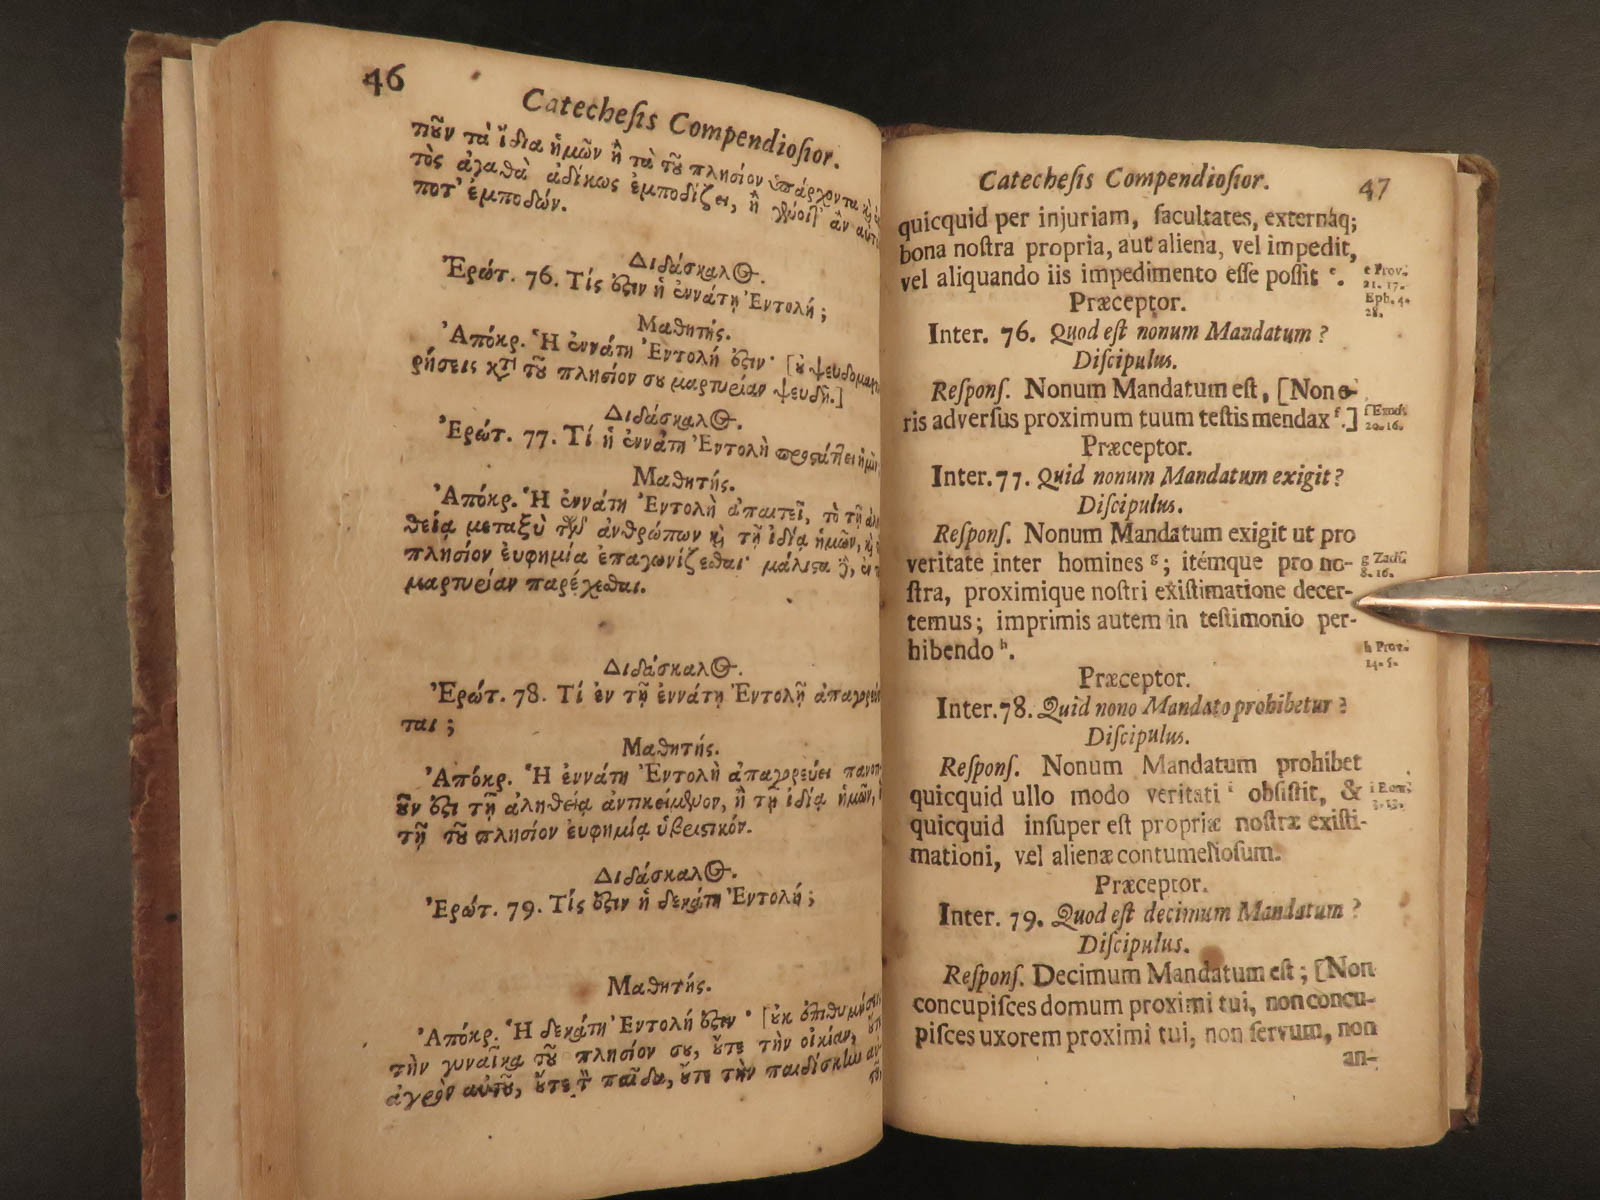 46
Catecheſis Compendioſior.
ποῦν τὰ ἴδια ἡμῶν ἢ τὰ τοῦ πλησίον ὑπάρχοντα
τὸς ἀγαθὰ ἀδίκως ἐμποδίζει, ἢ
ποτ' ἐμποδών.
Διδάσκαλος.
Ἐρώτ. 76. Τίς ἐστιν ἡ ἐννάτη Ἐντολή;
Μαθητής.
Ἀπόκρ. Ἡ ἐννάτη Ἐντολή ἐστιν· [οὐ ψευδομαρτυ
ρήσεις κατὰ τοῦ πλησίον σου μαρτυρίαν ψευδῆ.]
Διδάσκαλος.
Ἐρώτ. 77. Τί ἡ ἐννάτη Ἐντολὴ
Μαθητής.
Ἀπόκρ. Ἡ ἐννάτη Ἐντολὴ ἀπαιτεῖ, τὸ τῇ
θείᾳ μεταξὺ τῶν ἀνθρώπων καὶ τῇ ἰδίᾳ ἡμῶν,
πλησίον εὐφημίᾳ ἐπαγωνίζεσθαι· μάλιστα
μαρτυρίαν παρέχεσθαι.
Διδάσκαλος.
Ἐρώτ. 78. Τί ἐν τῇ ἐννάτῃ Ἐντολῇ ἀπαγορεύε
ται;
Μαθητής.
Ἀπόκρ. Ἡ ἐννάτη Ἐντολὴ ἀπαγορεύει
οὖν ἐστι τῇ ἀληθείᾳ ἀντικείμενον, ἢ τῇ ἰδίᾳ ἡμῶν,
τῇ τοῦ πλησίον εὐφημίᾳ ὑβριστικόν.
Διδάσκαλος.
Ἐρώτ. 79. Τίς ἐστιν ἡ δεκάτη Ἐντολή;
Μαθητής.
Ἀπόκρ. Ἡ δεκάτη Ἐντολή ἐστιν· [οὐκ ἐπιθυμήσεις
τὴν γυναῖκα τοῦ πλησίον σου, οὔτε τὴν οἰκίαν, οὔτε
ἀγρὸν αὐτοῦ, οὔτε τὸν παῖδα, οὔτε τὴν παιδίσκην
Catecheſis Compendioſior. 47
quicquid per injuriam, facultates, externáq;
bona noſtra propria, aut aliena, vel impedit,
vel aliquando iis impedimento eſſe poſſit e. e Prov.
21. 17.
Eph. 4.
28.
Præceptor.
Inter. 76. Quod eſt nonum Mandatum?
Diſcipulus.
Reſponſ. Nonum Mandatum eſt, [Non e-
ris adverſus proximum tuum teſtis mendax f.] f Exod.
20. 16.
Præceptor.
Inter. 77. Quid nonum Mandatum exigit?
Diſcipulus.
Reſponſ. Nonum Mandatum exigit ut pro
veritate inter homines g; itémque pro no-
8. 16.
ſtra, proximique noſtri exiſtimatione decer-
temus; imprimis autem in teſtimonio per-
hibendo h. h Prov.
14. 5.
Præceptor.
Inter. 78. Quid nono Mandato prohibetur?
Diſcipulus.
Reſponſ. Nonum Mandatum prohibet
quicquid ullo modo veritati i obſiſtit, & i Rom.
3. 13.
quicquid inſuper eſt propriæ noſtræ exiſti-
mationi, vel alienæ contumelioſum.
Præceptor.
Inter. 79. Quod eſt decimum Mandatum?
Diſcipulus.
Reſponſ. Decimum Mandatum eſt; [Non
concupiſces domum proximi tui, non concu-
piſces uxorem proximi tui, non ſervum, non
an-